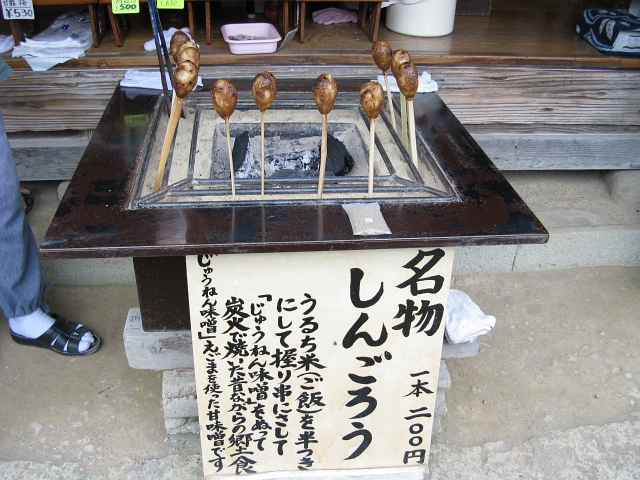 名物
一本 二〇〇円
しんごろう
うるち米(ご飯)を半つき
にして握り串にさして
「じゅうねん味噌」をぬって
炭火で焼いた昔ながらの郷土食
「じゅうねん味噌」えごまを使った甘味噌です
¥530
500